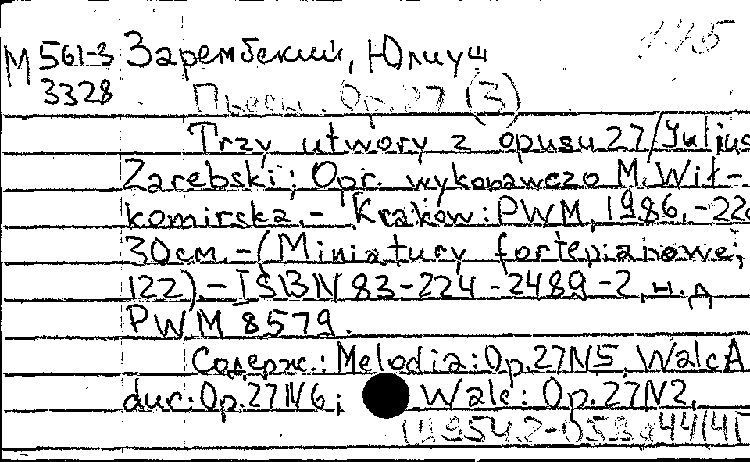 175
М 561-3 Зарембский, Юлиуш
3328
Пьесы. Ор. 27 (3)
Trzy utwory z opusu 27/Juliusz
Zarebski; Opr. wykonawczo M. Wił-
komirska.- Kraków: PWM, 1986.-22c
30см.-(Miniatury fortepianowe;
122).-ISBN 83-224-2489-2, н.д
PWM 8579.
Содерж.: Melodia: Op.27N5, Walc A
dur: Op.27N6; Walc: Op.27N2.